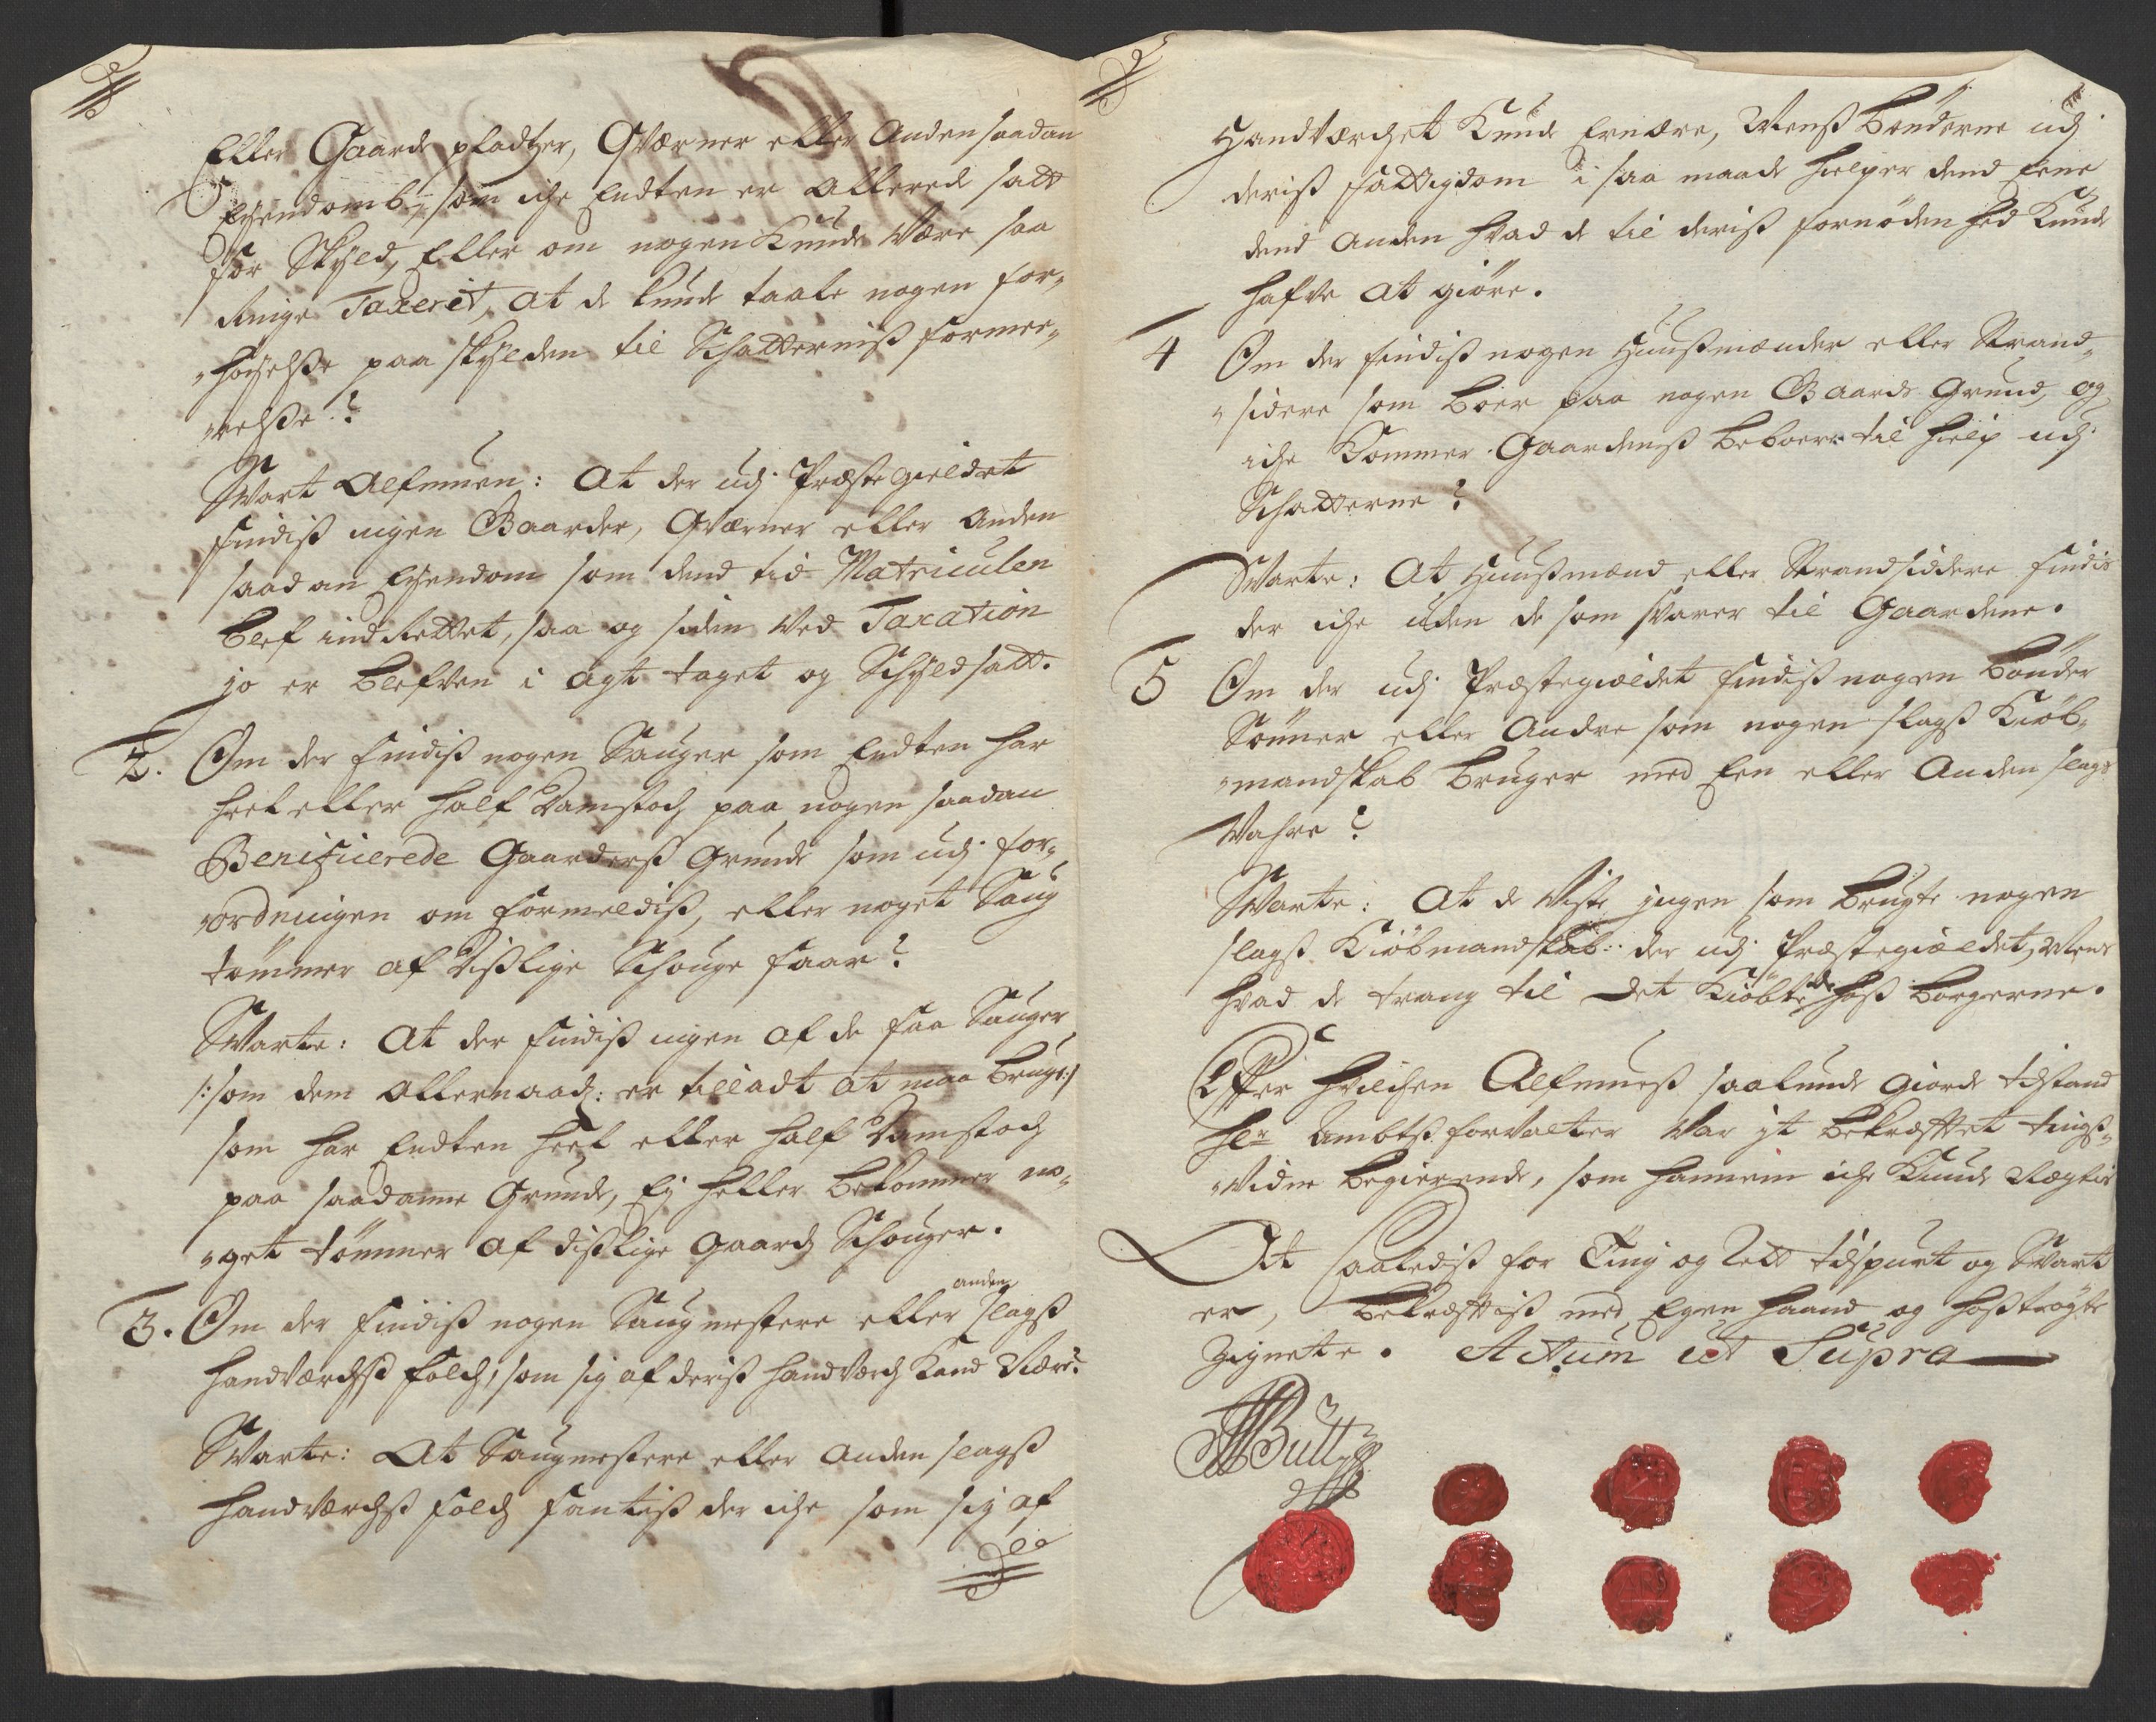 Eller Gaarde pladtzer, Qværner eller Anden saadan
Eyendomb, som iche Endten er Allerede satt
for Skyld, Eller om nogen Kunde Være saa
Ringe Taxerit, at de kunde taale nogen for„
„høyelße paa skylden til Schatterniß formee„
„relße?
Svart Alfmuen: At der udj Præstegieldet
findiß ingen Gaarder, Qværner eller Anden
saadan Eyendom som dend tid Matriculen
blef indrettet, saa og siden Ved Taxation
jo er blefven i agt taget og Schyldsatt.
2. Om der findiß nogen Sauger som Endten har
heel eller half Damstoch paa nogen saadan
Benificierede Gaarderß Grunde som udj for„
„ordningen om formeldiß, eller noget Saug
tømmer af dißlige Schouge faar?
Svarte: At der findiß ingen af de faa Sauger
/: som dem Allernaad: er tilladt at maa bruge :/
som har Endten heel eller half Damstoch
paa saadanne Grunde, Ej heller bekommer no„
„get tømmer af dißlige Gaards Schouger.
3. Om der findiß nogen Saugmestere eller anden slagß
handværchß folch, som sig af deriß handværch Kand Nære?
Svarte: At Saugmestere eller Anden slagß
handværchß folch fantiß der iche som sig af
Handværchet Kunde Ernære, Menß bønderne udj
deriß fattigdom i saa maade hielper dend Eene
dend Anden hvad de til deriß fornødenhed Kunde
hafve at giøre.
4 Om der findiß nogen Huußmænder eller Strand„
„sidere som boer paa nogen Gaards Grund, og
iche Kommer Gaardenß beboere til hielp udj
Schatterne?
Svarte: At Huußmænd eller Strandsiddere findis
der iche uden de som svarer til Gaardene.
5 Om der udj Præstegieldet findiß nogen bønder
Sønner eller Andre som nogen slagß Kiøb„
„mandskab bruger med Een eller Anden slags
Vahre?
Svarte: At de Viste ingen som brugte nogen
slagß Kiøbmandskab der udj Præstegieldet, Mens
hvad de trang til det Kiøbte de hoß borgerne.
Efter hvilchen Alfmueß saalunde giorde tilstand
Hr Ambtß forvalter Var it bekræftet tingß„
„vidne begierende, som hannem iche Kunde Negtis
At saalediß for Ting og Rett tilspurt og Svart
er, bekræftiß med Egen haand og hoßtrøgte
Zignete. Actum ut Supra